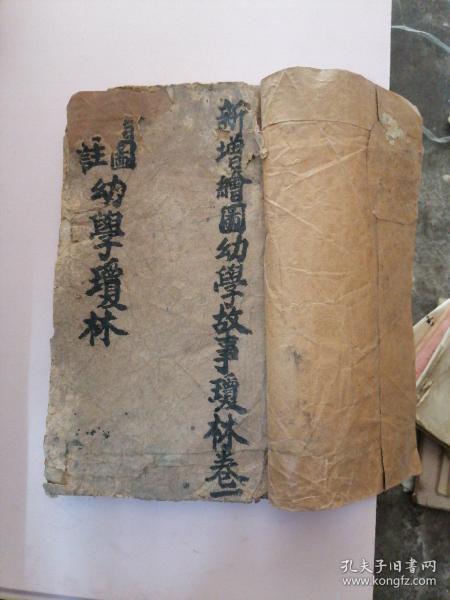 新增繪圖幼學故事瓊林卷一
圖註幼學瓊林
孔夫子旧书网
www.kongfz.com